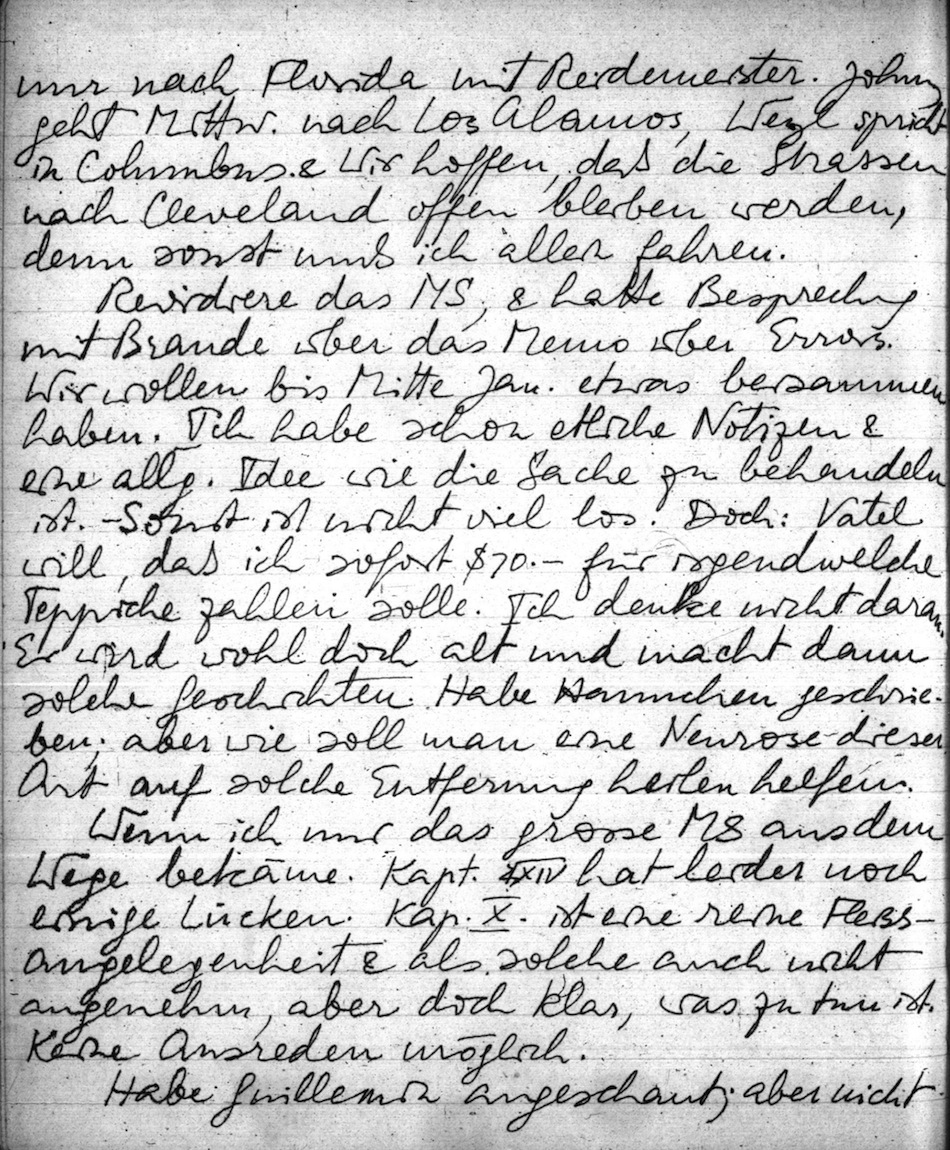 nur nach Florida mit Reidemeister. Johnny
geht Mittw. nach Los Alamos, Weyl spricht
in Columbus. & Wir hoffen, daß die Strassen
nach Cleveland offen bleiben werden,
denn sonst muß ich allein fahren.
Revidiere das MS, & hatte Besprechung
mit Brande über das Memo über Errors.
Wir wollen bis Mitte Jan. etwas beisammen
haben. Ich habe schon etliche Notizen &
eine allg. Idee wie die Sache zu behandeln
ist. – Sonst ist nicht viel los. Doch: Vatel
will, daß ich sofort $70.– für irgendwelche
Teppiche zahlen solle. Ich denke nicht daran.
Er wird wohl doch alt und macht dann
solche Geschichten. Habe Hannchen geschrie-
ben; aber wie soll man eine Neurose dieser
Art auf solche Entfernung heilen helfen.
Wenn ich nur das grosse MS aus dem
Wege bekäme. Kapt. XXIV hat leider noch
einige Lücken. Kap. X. ist eine reine Fleiss-
angelegenheit & als solche auch nicht
angenehm, aber doch klar, was zu tun ist.
Keine Ausreden möglich.
Habe Guillemin angeschaut; aber nicht